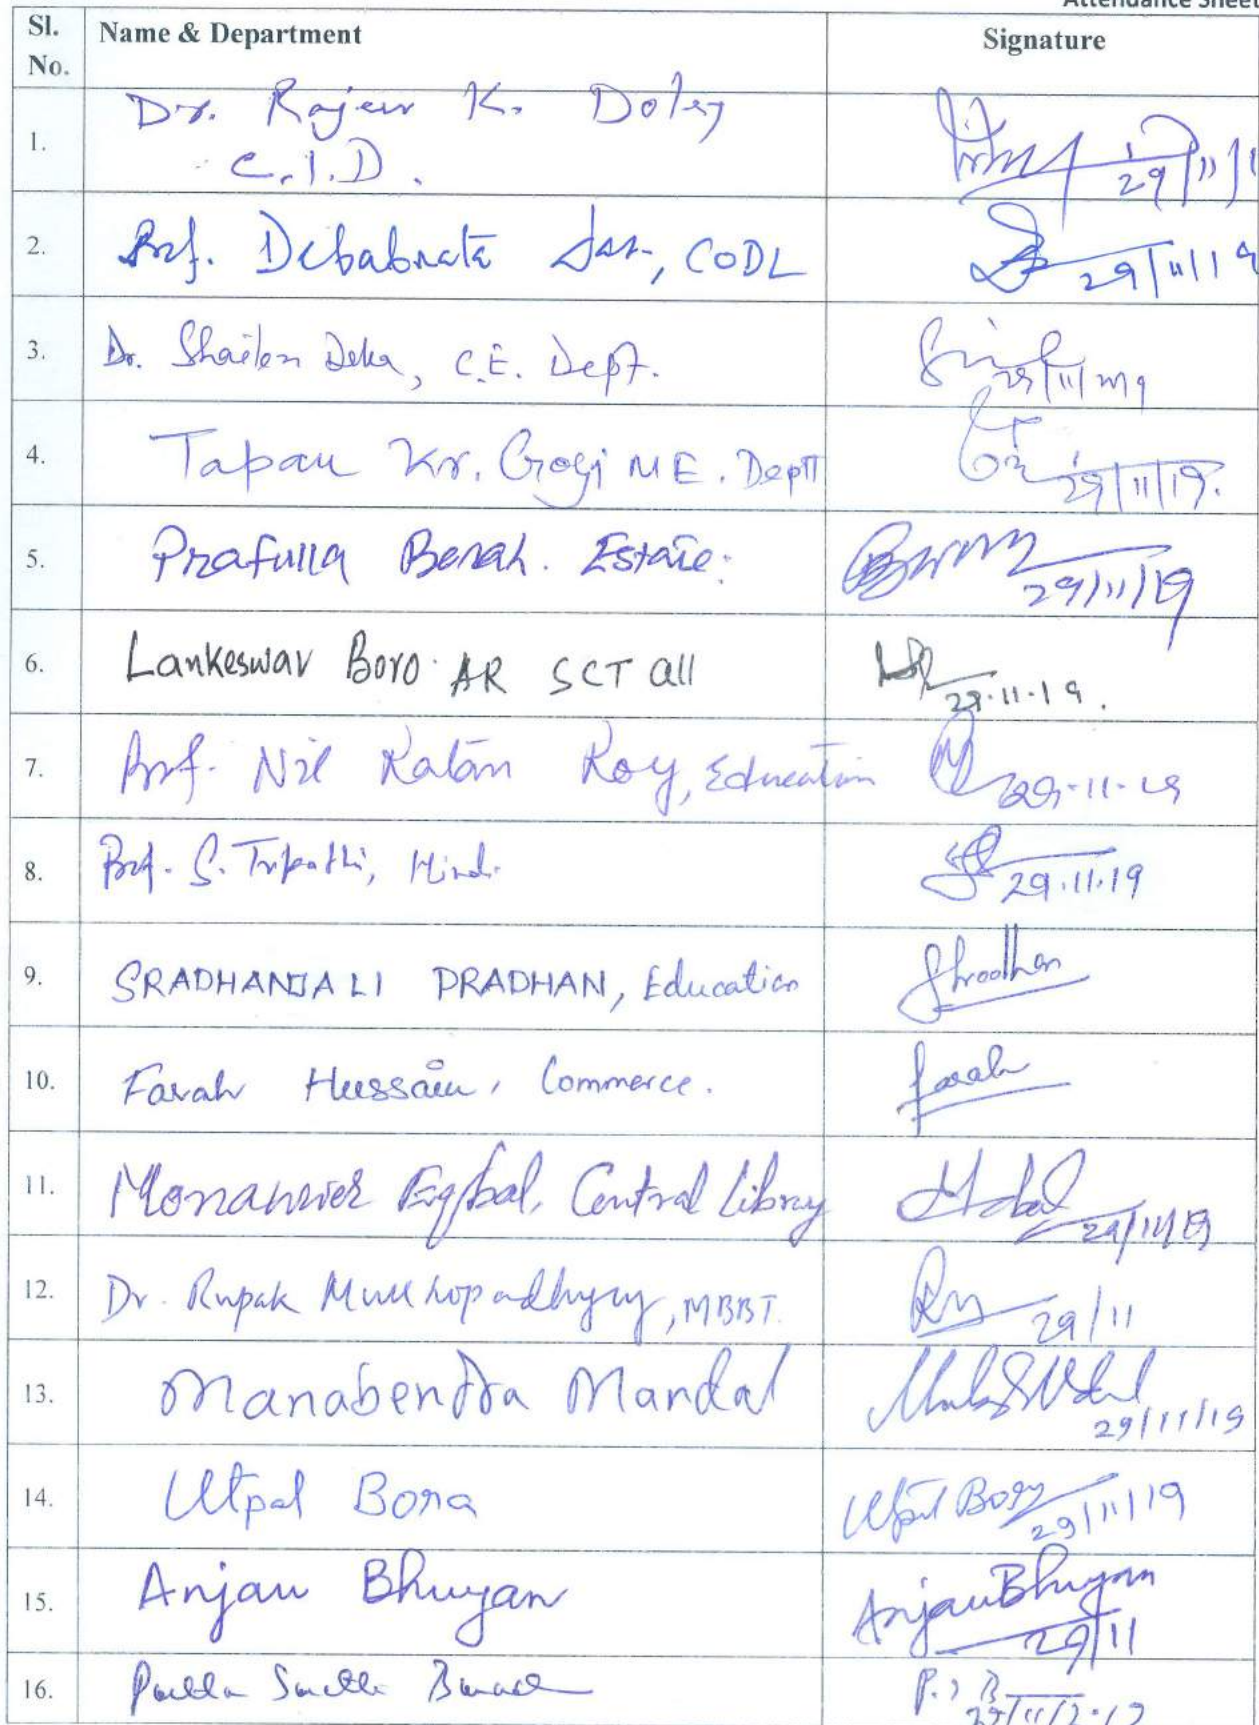 Attendance Sheet
Sl. No. Name & Department Signature
1. Dr. Rajeev K. Doley
C.I.D. 29/11/1
2. Prof. Debabrata Das, CODL 29/11/19
3. Dr. Shailen Deka, C.E. Dept. 29/11/2019
4. Tapan Kr. Gogoi ME. Deptt 29/11/19.
5. Prafulla Borah. Estate. 29/11/19
6. Lankeswar Boro. AR SCT all 29.11.19.
7. Prof. Nil Ratan Roy, Education 29.11.19
8. Prof. S. Tripathi, Hindi 29.11.19
9. SRADHANJALI PRADHAN, Education
10. Farah Hussain, Commerce. farah
11. Central Library 29/11/19
12. Dr. Rupak Mukhopadhyay, MBBT. 29/11
13. Manabendra Mandal 29/11/19
14. Utpal Bora Utpal Bora 29/11/19
15. Anjan Bhuyan Anjan Bhuyan 29/11
16.